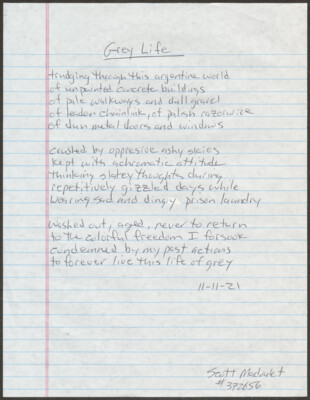 Grey Life
trudging through this argentine world
of unpainted concrete buildings
of pale walkways and dull gravel
of leaden chainlink, of palish razorwire
of dun metal doors and windows
crushed by oppressive ashy skies
kept with achromatic attitude
thinking slatey thoughts during
repetitively grizzled days while
wearing sad and dingy prison laundry
washed out, aged, never to return
to the colorful freedom I forsook
condemned by my past actions
to forever live this life of grey
11-11-21
Scott
#372656